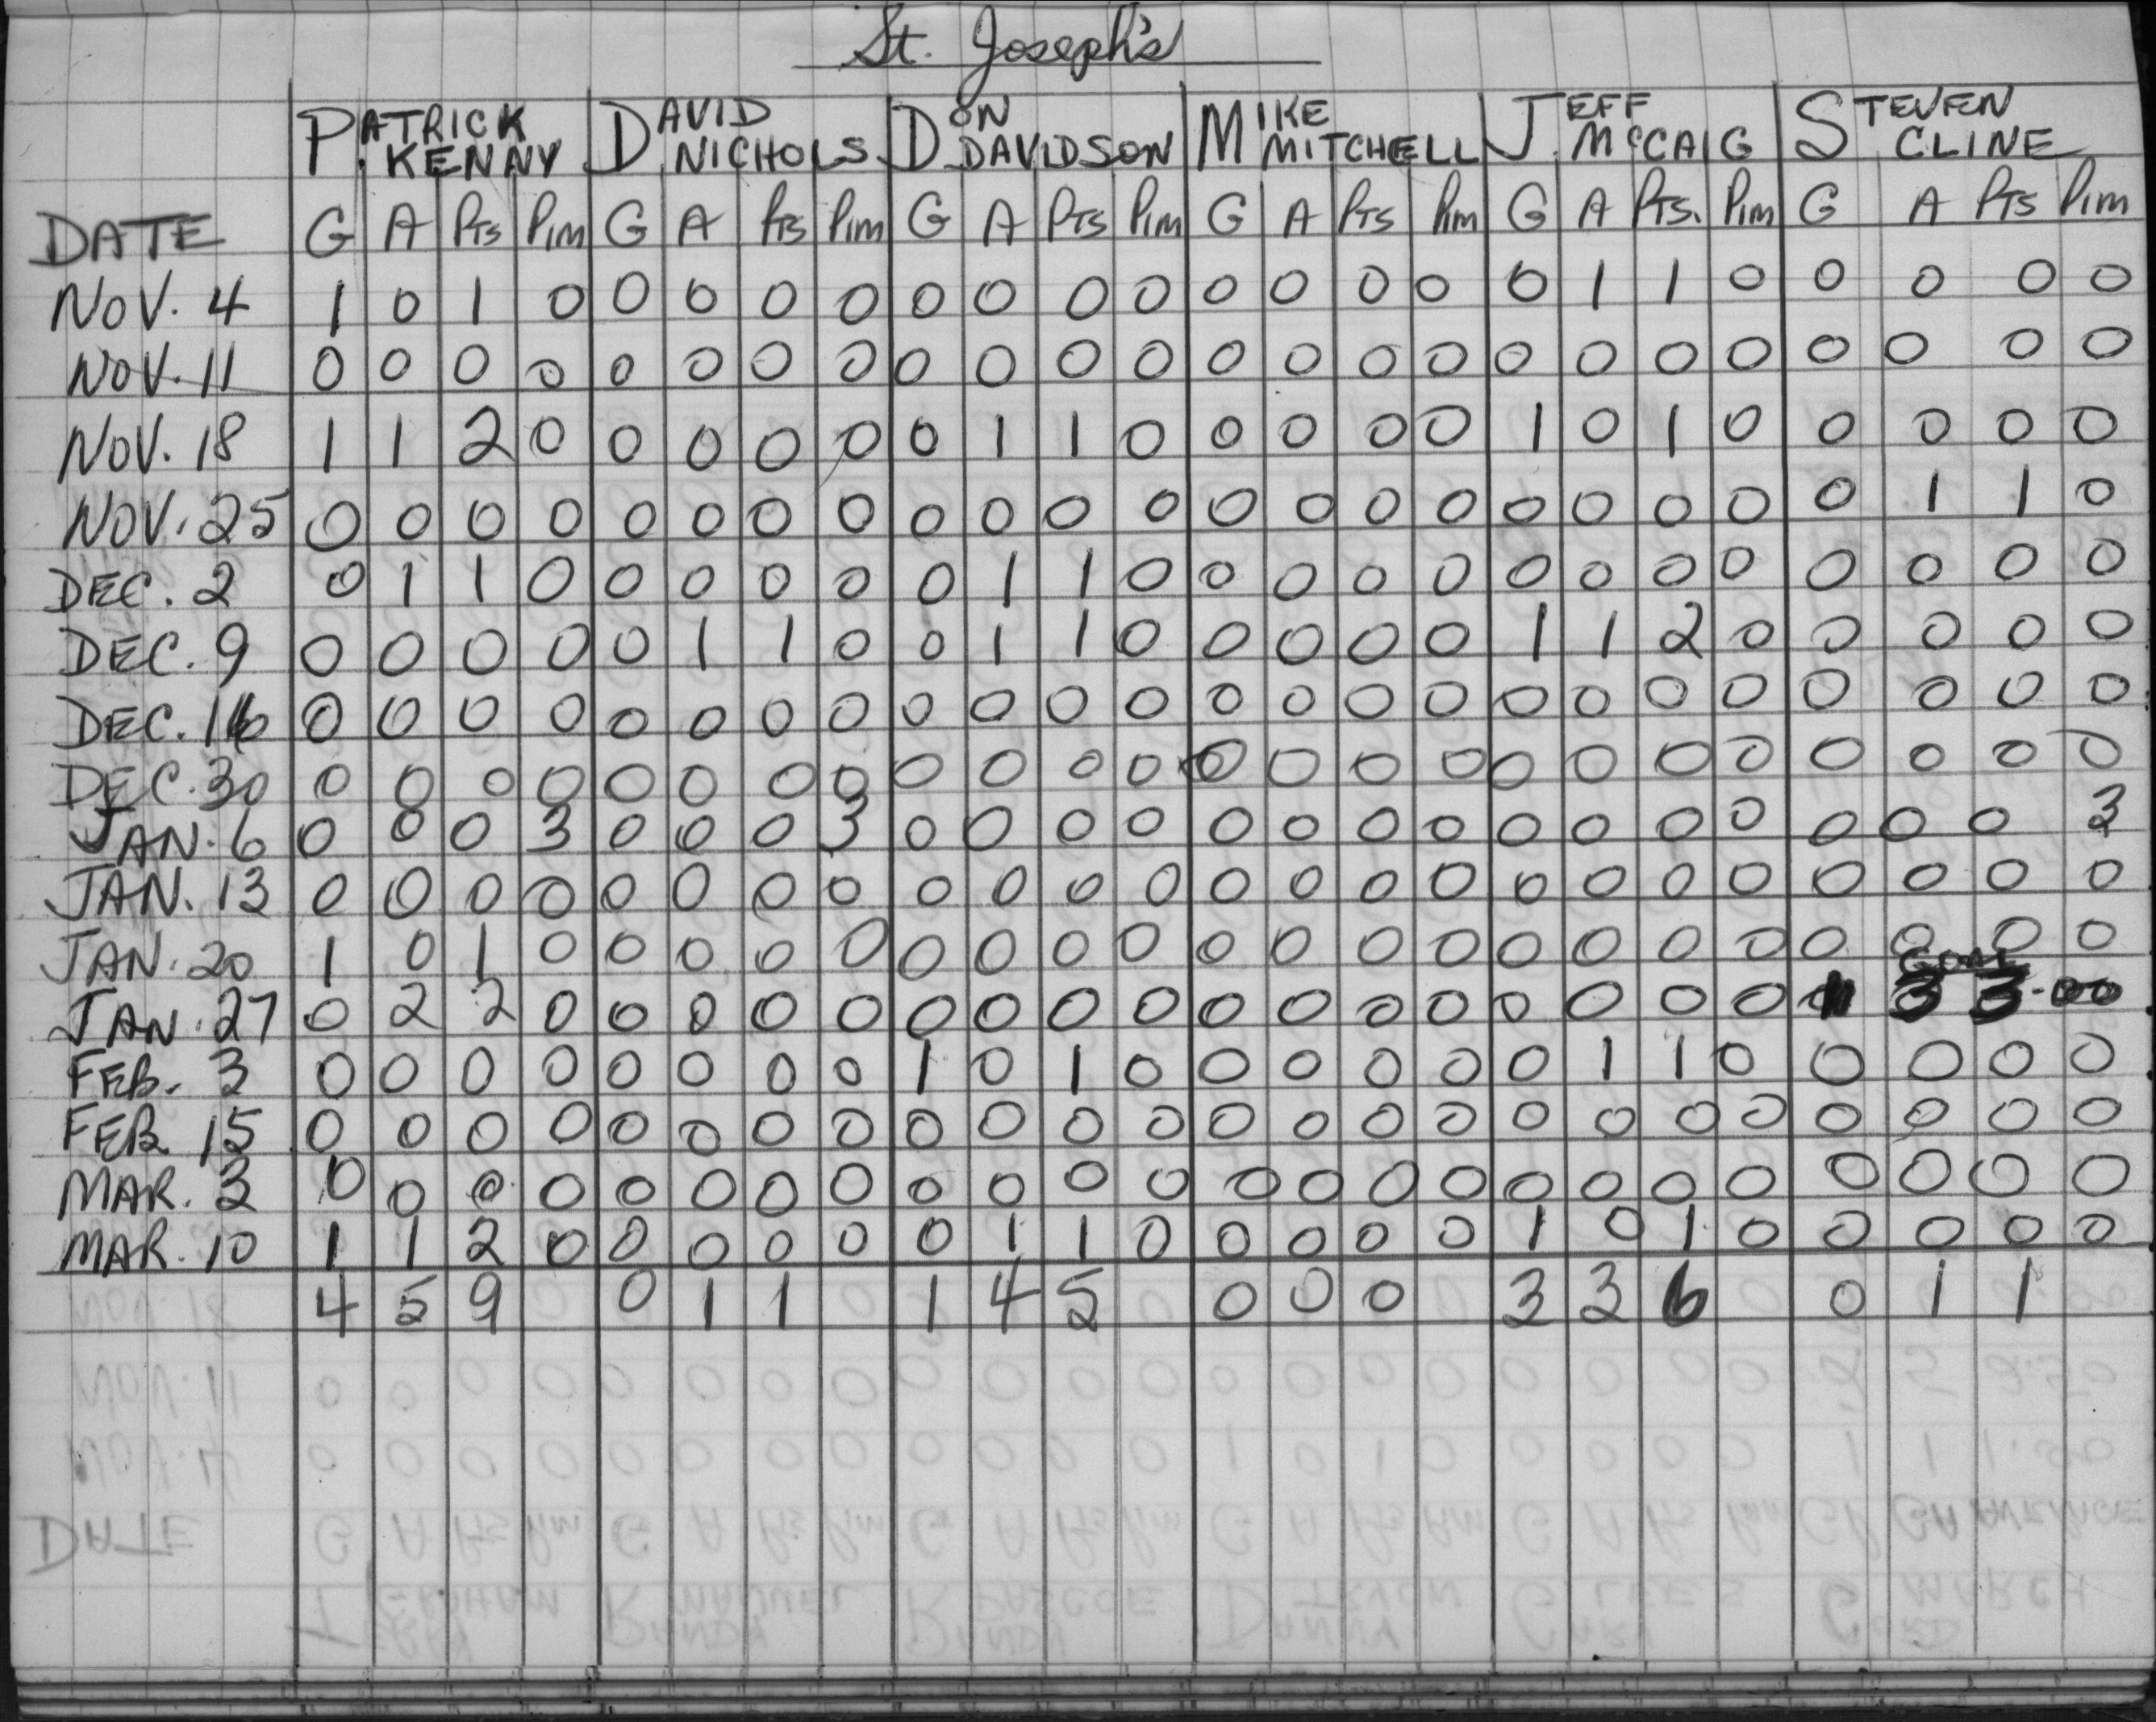 St. Joseph's
PATRICK KENNY DAVID NICHOLS DON DAVIDSON MIKE MITCHELL JEFF McCAIG STEVEN CLINE
DATE G A Pts Pim G A Pts Pim G A Pts Pim G A Pts Pim G A Pts. Pim G A Pts Pim
NOV. 4 1 0 1 0 0 0 0 0 0 0 0 0 0 0 0 0 0 1 1 0 0 0 0 0
NOV. 11 0 0 0 0 0 0 0 0 0 0 0 0 0 0 0 0 0 0 0 0 0 0 0 0
NOV. 18 1 1 2 0 0 0 0 0 0 1 1 0 0 0 0 0 1 0 1 0 0 0 0 0
NOV. 25 0 0 0 0 0 0 0 0 0 0 0 0 0 0 0 0 0 0 0 0 0 1 1 0
DEC. 2 0 1 1 0 0 0 0 0 0 1 1 0 0 0 0 0 0 0 0 0 0 0 0 0
DEC. 9 0 0 0 0 0 1 1 0 0 1 1 0 0 0 0 0 1 1 2 0 0 0 0 0
DEC. 16 0 0 0 0 0 0 0 0 0 0 0 0 0 0 0 0 0 0 0 0 0 0 0 0
DEC. 30 0 0 0 0 0 0 0 0 0 0 0 0 0 0 0 0 0 0 0 0 0 0 0 0
JAN. 6 0 0 0 3 0 0 0 3 0 0 0 0 0 0 0 0 0 0 0 0 0 0 0 3
JAN. 13 0 0 0 0 0 0 0 0 0 0 0 0 0 0 0 0 0 0 0 0 0 0 0 0
JAN. 20 1 0 1 0 0 0 0 0 0 0 0 0 0 0 0 0 0 0 0 0 0 0 0 0
GOAL
JAN. 27 0 2 2 0 0 0 0 0 0 0 0 0 0 0 0 0 0 0 0 0 3 3.00
FEB. 3 0 0 0 0 0 0 0 0 1 0 1 0 0 0 0 0 0 1 1 0 0 0 0 0
FEB. 15 0 0 0 0 0 0 0 0 0 0 0 0 0 0 0 0 0 0 0 0 0 0 0 0
MAR. 3 0 0 0 0 0 0 0 0 0 0 0 0 0 0 0 0 0 0 0 0 0 0 0 0
MAR. 10 1 1 2 0 0 0 0 0 0 1 1 0 0 0 0 0 1 0 1 0 0 0 0 0
4 5 9 0 1 1 1 4 5 0 0 0 3 3 6 0 1 1